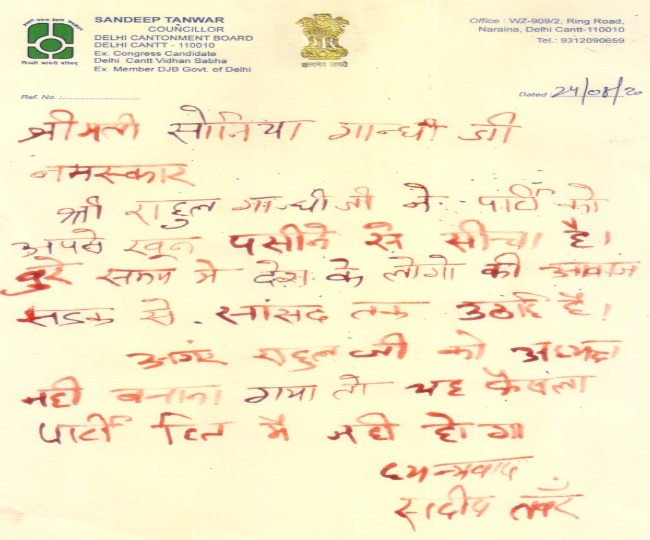 SANDEEP TANWAR
COUNCILLOR
DELHI CANTONMENT BOARD
DELHI CANTT - 110010
Ex. Congress Candidate
Delhi Cantt Vidhan Sabha
Ex. Member DJB Govt. of Delhi
सत्यमेव जयते
Office : WZ-909/2, Ring Road,
Naraina, Delhi Cantt-110010
Tel.: 9312090659
Ref. No. :
Dated : 24/08/20
श्रीमती सोनिया गान्धी जी
नमस्कार
श्री राहुल गान्धी जी ने पार्टि को
अपने खून पसीने से सींचा है।
बुरे समय मे देश के लोगो की आवाज
सडक से सांसद तक उठाई है।
अगर राहुल जी को अध्यक्ष
नही बनाया गया तो यह फैसला
पार्टी हित मै नही होगा
धन्यवाद
सदीप तवँर